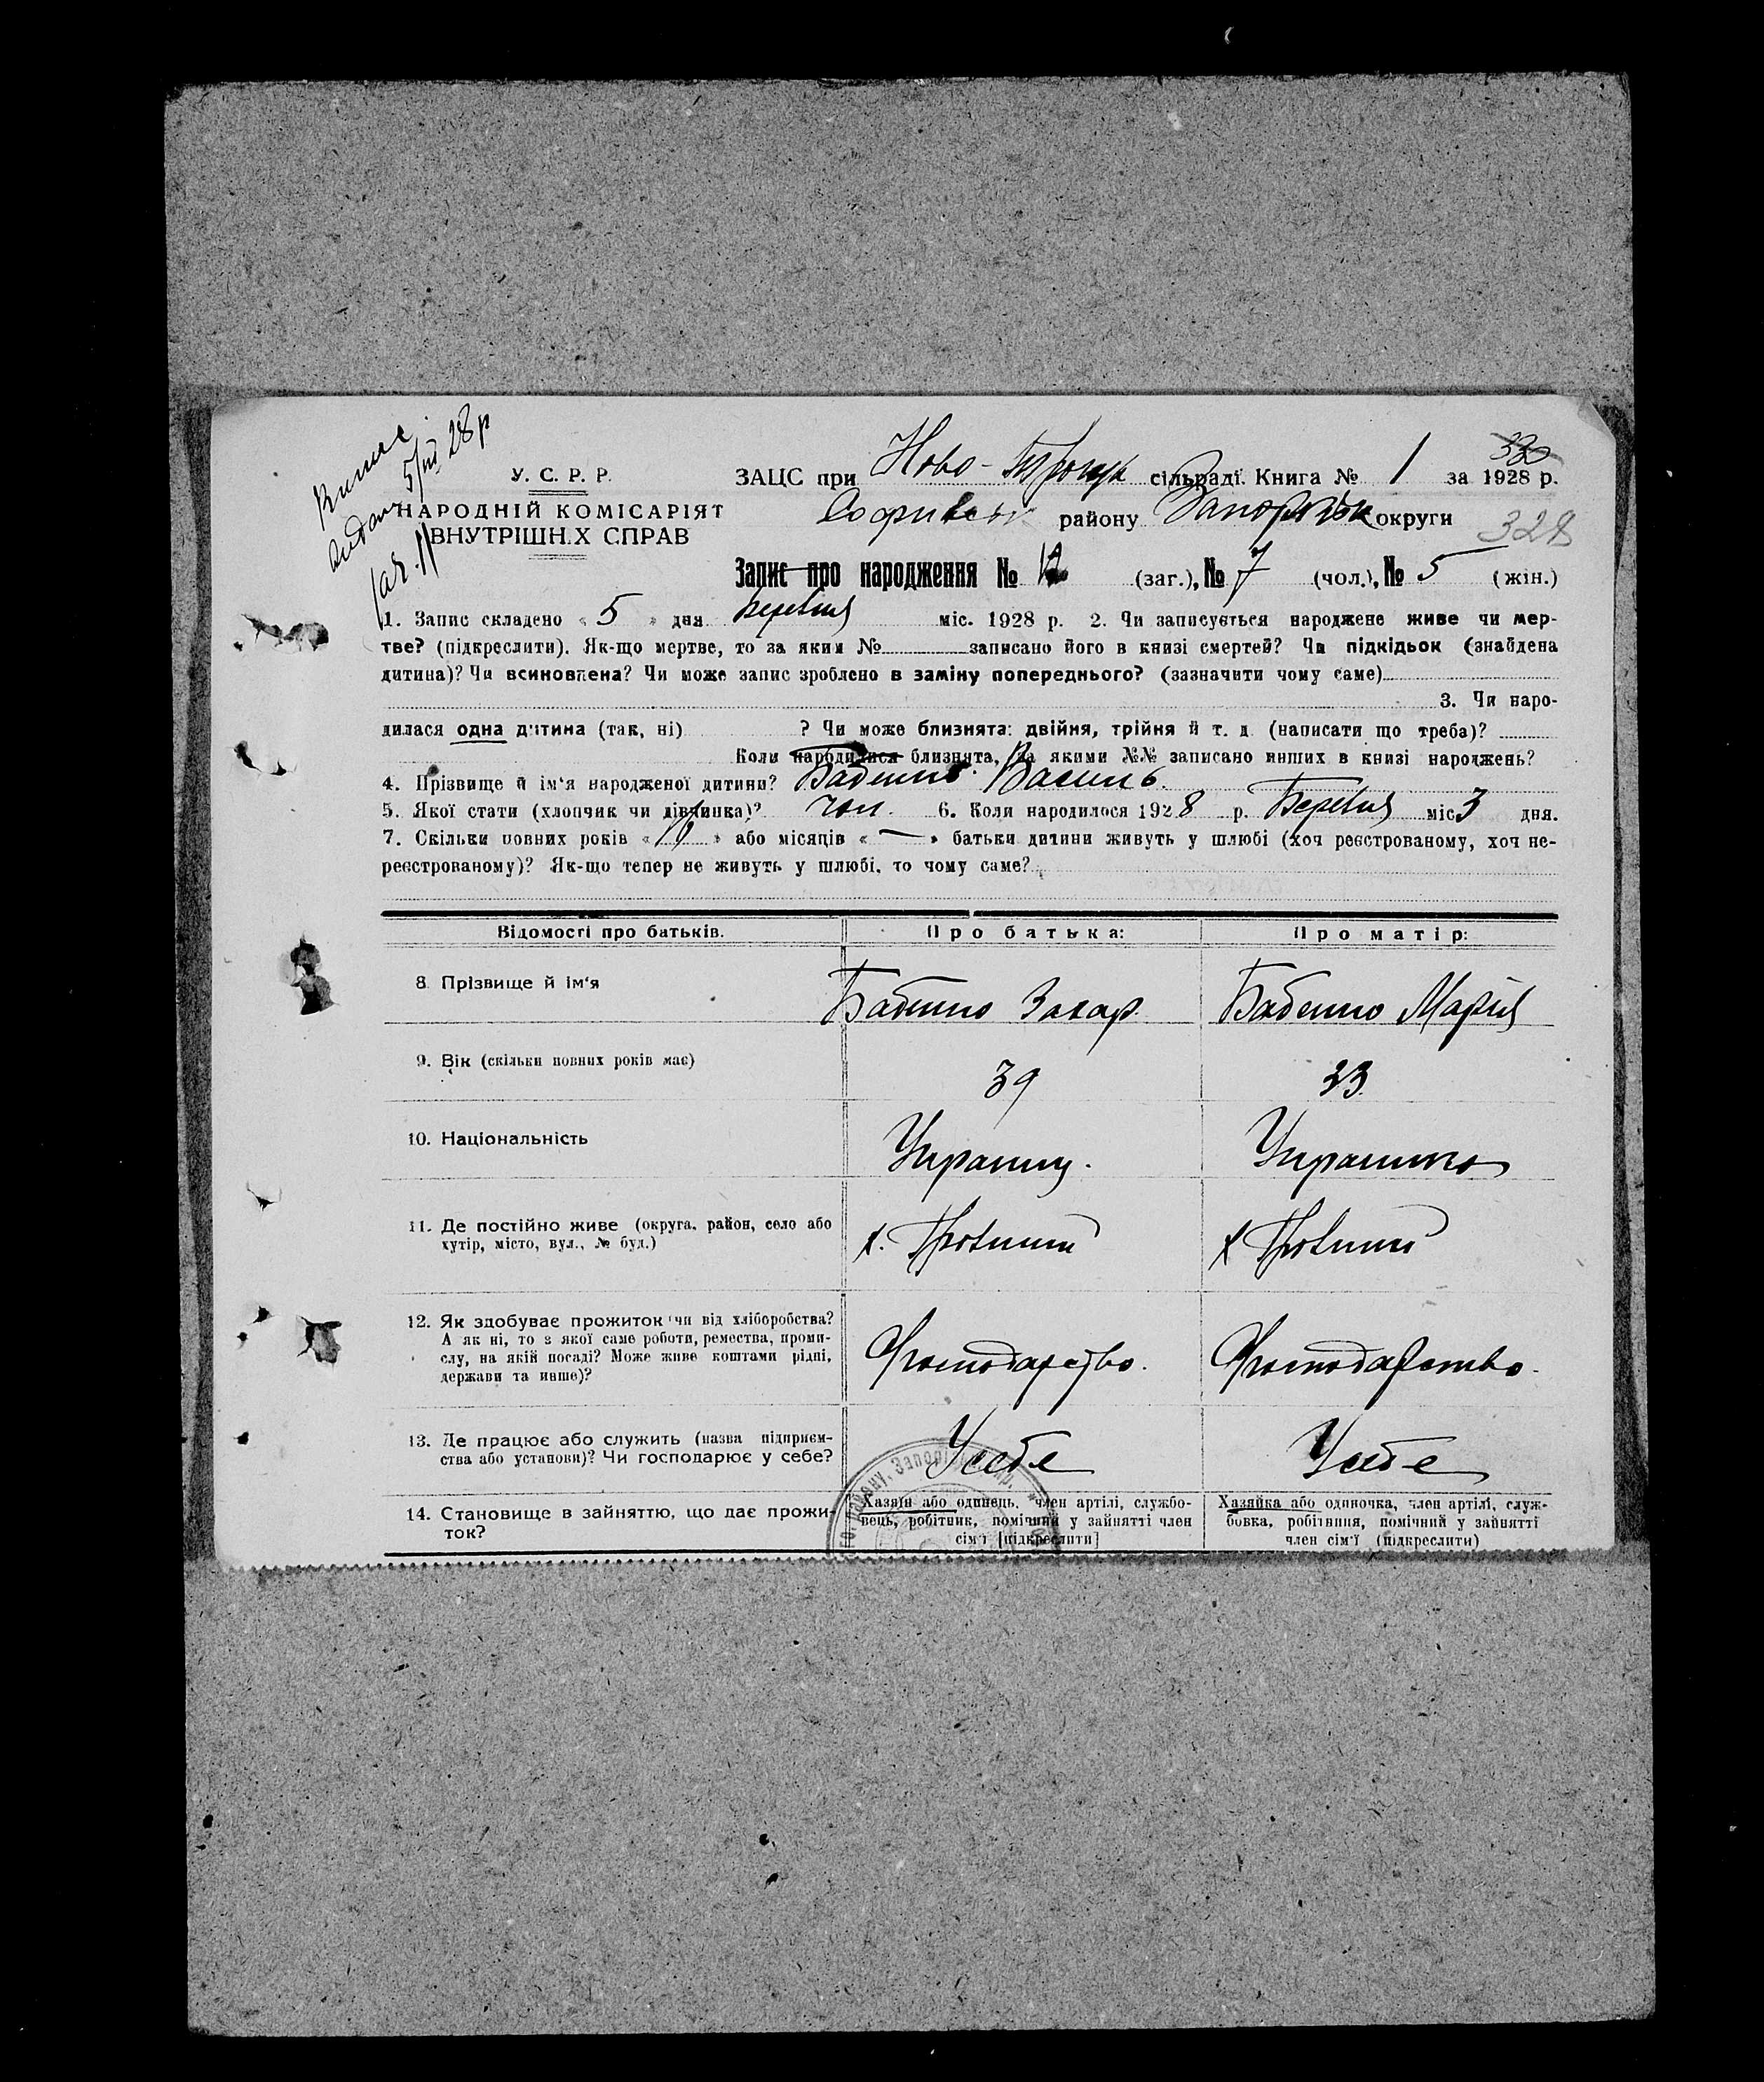 Випис
видано 5/III 28 р
330
У. С. Р. Р.
НАРОДНІЙ КОМІСАРІЯТ
ВНУТРІШН.Х СПРАВ
ЗАЦС при Ново-Троицк сільраді. Книга № 1 за 1928 р.
Софиевськ району Запорізьк округи
328
Запис про народження № 12 (заг.), № 7 (чол.), № 5 (жін.)
1. Запис складено « 5 » дня Березня міс. 1928 р. 2. Чи записується народжене живе чи мер-
тве? (підкреслити). Як-що мертве, то за яким № записано його в книзі смертей? Чи підкідьок (знайдена
дитина)? Чи всиновлена? Чи може запис зроблено в заміну попереднього? (зазначити чому саме)
3. Чи наро-
дилася одна дитина (так, ні) ? Чи може близнята: двійня, трійня й т. д (написати що треба)?
Коли народилися близнята, за якими №№ записано инших в книзі народжень?
4. Прізвище й ім'я народженої дитини? Бабенко Василь
5. Якої стати (хлопчик чи дівчинка)? чол. 6. Коли народилося 1928 р. Березня міс 3 дня.
7. Скільки повних років « 16 » або місяців « — » батьки дитини живуть у шлюбі (хоч реєстрованому, хоч не-
реєстрованому)? Як-що тепер не живуть у шлюбі, то чому саме?
Відомості про батьків. Про батька: Про матір:
8. Прізвище й ім'я Бабенко Захар. Бабенко Марія
9. Вік (скільки повних років має) 39 33
10. Національність Украинц. Украинка
11. Де постійно живе (округа, район, село або
хутір, місто, вул., № буд.)
12. Як здобуває прожиток чи від хліборобства?
А як ні, то з якої саме роботи, ремества, проми-
слу, на якій посаді? Може живе коштами рідні,
держави та инше)?
Господарство. Господарство.
13. Де працює або служить (назва підприєм-
ства або установи)? Чи господарює у себе?
У себе У себе
14. Становище в зайняттю, що дає прожи-
ток?
Хазяїн або одинець, член артілі, службо-
вець, робітник, помічний у зайнятті член
сім'ї [підкреслити]
Хазяйка або одиночка, член артілі, служ-
бовка, робітниця, помічний у зайнятті
член сім'ї (підкреслити)